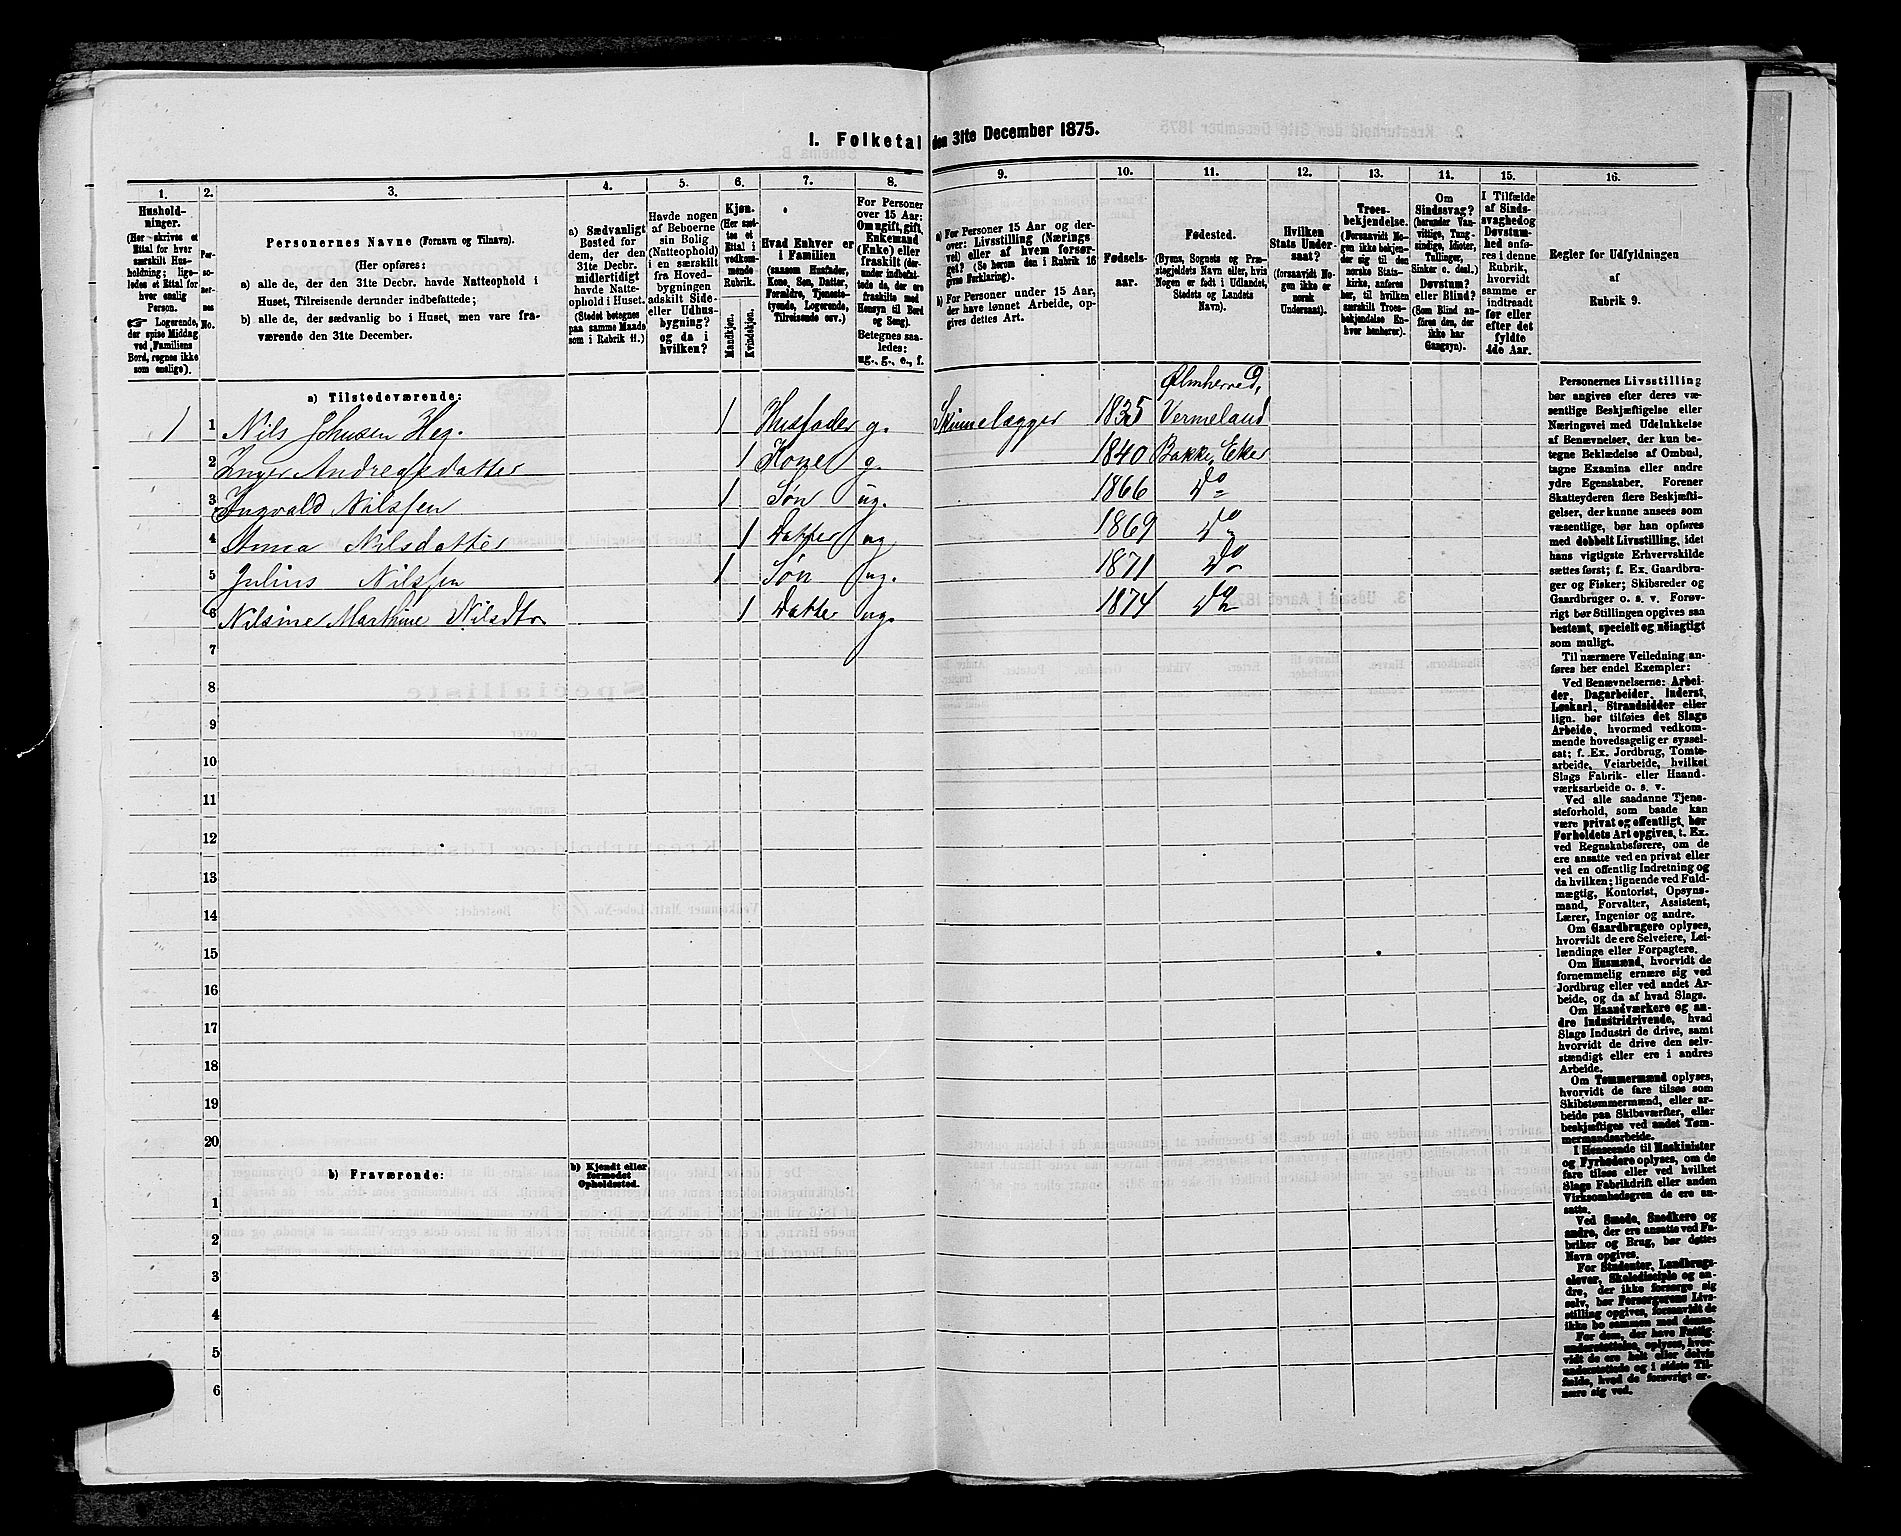 I. Folketal den 31te December 1875.
1. 2. 3. 4. 5. 6. 7. 8. 9. 10. 11. 12. 13. 14. 15. 16.
Hushold-
ninger.
(Her skrives et
Ettal for hver
særskilt Hus-
holdning; lige-
ledes et Ettal for
hver enslig
Person.
☞ Logerende,
der spise Middag
ved Familiens
Bord, regnes ikke
som enslige).
Per-
so-
ner-
nes
No.
Personernes Navne (Fornavn og Tilnavn).
(Her opføres:
a) alle de, der den 31te Decbr. havde Natteophold i
Huset, Tilreisende derunder indbefattede;
b) alle de, der sædvanlig bo i Huset, men vare fra-
værende den 31te December.
a) Sædvanligt
Bosted for
dem, der den
31te Decbr.
midlertidigt
havde Natte-
ophold i Huset.
(Stedet betegnes
paa samme Maade
som i Rubrik 11.)
Havde nogen
af Beboerne
sin Bolig
(Natteophold)
i en særskilt
fra Hoved-
bygningen
adskilt Side-
eller Udhus-
bygning?
og da i
hvilken?
Kjøn.
(Her sæt-
tes et
Ettal i
vedkom-
mende
Rubrik.
Mandkjøn.
Kvindekjøn.
Hvad Enhver er
i Familien
(saasom Husfader,
Kone, Søn, Datter,
Forældre, Tjeneste-
tyende, Logerende,
Tilreisende osv.)
For Personer
over 15 Aar:
Om ugift, gift,
Enkemand
(Enke) eller
fraskilt (der-
under indbefat-
tede de, der ere
fraskilte med
Hensyn til Bord
og Seng).
Betegnes saa-
ledes:
ug., g., e., f.
a) For Personer 15 Aar og der-
over: Livsstilling (Nærings
vei) eller af hvem forsør-
get? (Se herom den i Rubrik 16
givne Forklaring).
b) For Personer under 15 Aar,
der have lønnet Arbeide, op-
gives dettes Art.
Fødsels-
aar.
Fødested.
(Byens, Sognets og Præ-
stegjeldets Navn eller, hvis
Nogen er født i Udlandet,
Stedets og Landets
Navn).
Hvilken
Stats Under-
saat?
(forsaavidt No-
gen ikke er
norsk
Undersaat).
Troes-
bekjendelse.
(Forsaavidt No-
gen ikke bekjen-
der sig til den
norske Stats-
kirke, anføres
her, til hvilken
særskilt Troes-
bekjendelse En-
hver henhører).
Om
Sindssvag?
(herunder Van-
vittige, Tung-
sindige, Idioter,
Tullinger,
Sinker o. desl.)
Døvstum?
eller Blind?
(Som Blind an-
føres den, der
ikke har
Gangsyn).
I Tilfælde
af Sinds-
svaghed og
Døvstum-
hed anfø-
res i denne
Rubrik,
hvorvidt
samme er
indtraadt
før eller
efter det
fyldte
4de Aar.
Regler for Udfyldningen
af
Rubrik 9.
a) Tilstedeværende:
1 1 Nils Johnsen Heg. 1 Husfader g. Skinnelægger 1835 Ølmherred, Vermeland
2 Inger Andreasdatter 1 Kone g. 1840 Bakke, Eker
3 Ingvald Nilssen 1 Søn ug. 1866 Do
4 Anna Nilsdatter 1 Datter ug. 1869 Do
5 Julius Nilssen 1 Søn ug. 1871 Do
6 Nilsine Marthine Nilsdtr 1 Datter ug. 1874 Do
7
8
9
10
11
12
13
14
15
16
17
18
19
20
b) Fraværende:
b) Kjendt eller
formodet
Opholdssted.
1
2
3
4
5
6
Personernes Livsstilling
bør angives efter deres væ-
sentlige Beskjæftigelse eller
Næringsvei med Udelukkelse
af Benævnelser, der kun be-
tegne Beklædelse af Ombud,
tagne Examina eller andre
ydre Egenskaber. Forener
Skatteyderen flere Beskjæfti-
gelser, der kunne ansees som
væsentlige, bør han opføres
med dobbelt Livsstilling, idet
hans vigtigste Erhvervskilde
sættes først; f. Ex. Gaardbru-
ger og Fisker; Skibsreder og
Gaardbruger o. s. v. Forøv-
rigt bør Stillingen opgives saa
bestemt, specielt og nøiagtigt
som muligt.
Til nærmere Veiledning an-
føres her endel Exempler:
Ved Benævnelserne: Arbei-
der, Dagarbeider, Inderst,
Løskarl, Strandsidder eller
lign. bør tilføies det Slags
Arbeide, hvormed vedkom-
mende hovedsagelig er syssel-
sat; f. Ex. Jordbrug, Tomte-
arbeide, Veiarbeide, hvilket
Slags Fabrik- eller Haand-
værksarbeide o. s. v.
Ved alle saadanne Tjene-
steforhold, som baade kan
være privat og offentligt, bør
Forholdets Art opgives, t. Ex.
ved Regnskabsførere, om de
ere ansatte ved en privat eller
ved en offentlig Indretning og
da hvilken; lignende ved Fuld-
mægtig, Kontorist, Opsyns-
mand, Forvalter, Assistent,
Lærer, Ingeniør og andre.
Om Gaardbrugere oplyses,
hvorvidt de ere Selveiere, Lei-
lændinge eller Forpagtere.
Om Husmænd, hvorvidt de
fornemmelig ernære sig ved
Jordbrug eller ved andet Ar-
beide, og da af hvad Slags.
Om Haandværkere og an-
dre Industridrivende, hvad
Slags Industri de drive, samt
hvorvidt de drive den selv-
stændigt eller ere i andres
Arbeide.
Om Tømmermænd oplyses,
hvorvidt de fare tilsøs som
Skibstømmermænd, eller ar-
beide paa Skibsværfter, eller
beskjæftiges ved andet Tøm-
mermandsarbeide.
I Henseende til Maskinister
og Fyrbødere oplyses, om de
fare tilsøs eller ved hvilket
Slags Fabrikdrift eller anden
Virksomhedsgren de ere an-
satte.
Ved Smede, Snedkere og
andre, der ere ansatte ved Fa-
briker og Brug, bør dettes
Navn opgives.
For Studenter, Landbrugs-
elever, Skoledisciple og an-
dre, der ikke forsørge sig
selv, bør Forsørgerens Livs-
stilling opgives, forsaavidt de
ikke bo sammen med denne.
For dem, der have Fattig-
understøttelse, oplyses, hvor-
vidt de ere helt eller delvis
understøttede og i sidste Til-
fælde, hvad de forøvrigt er-
nære sig ved.